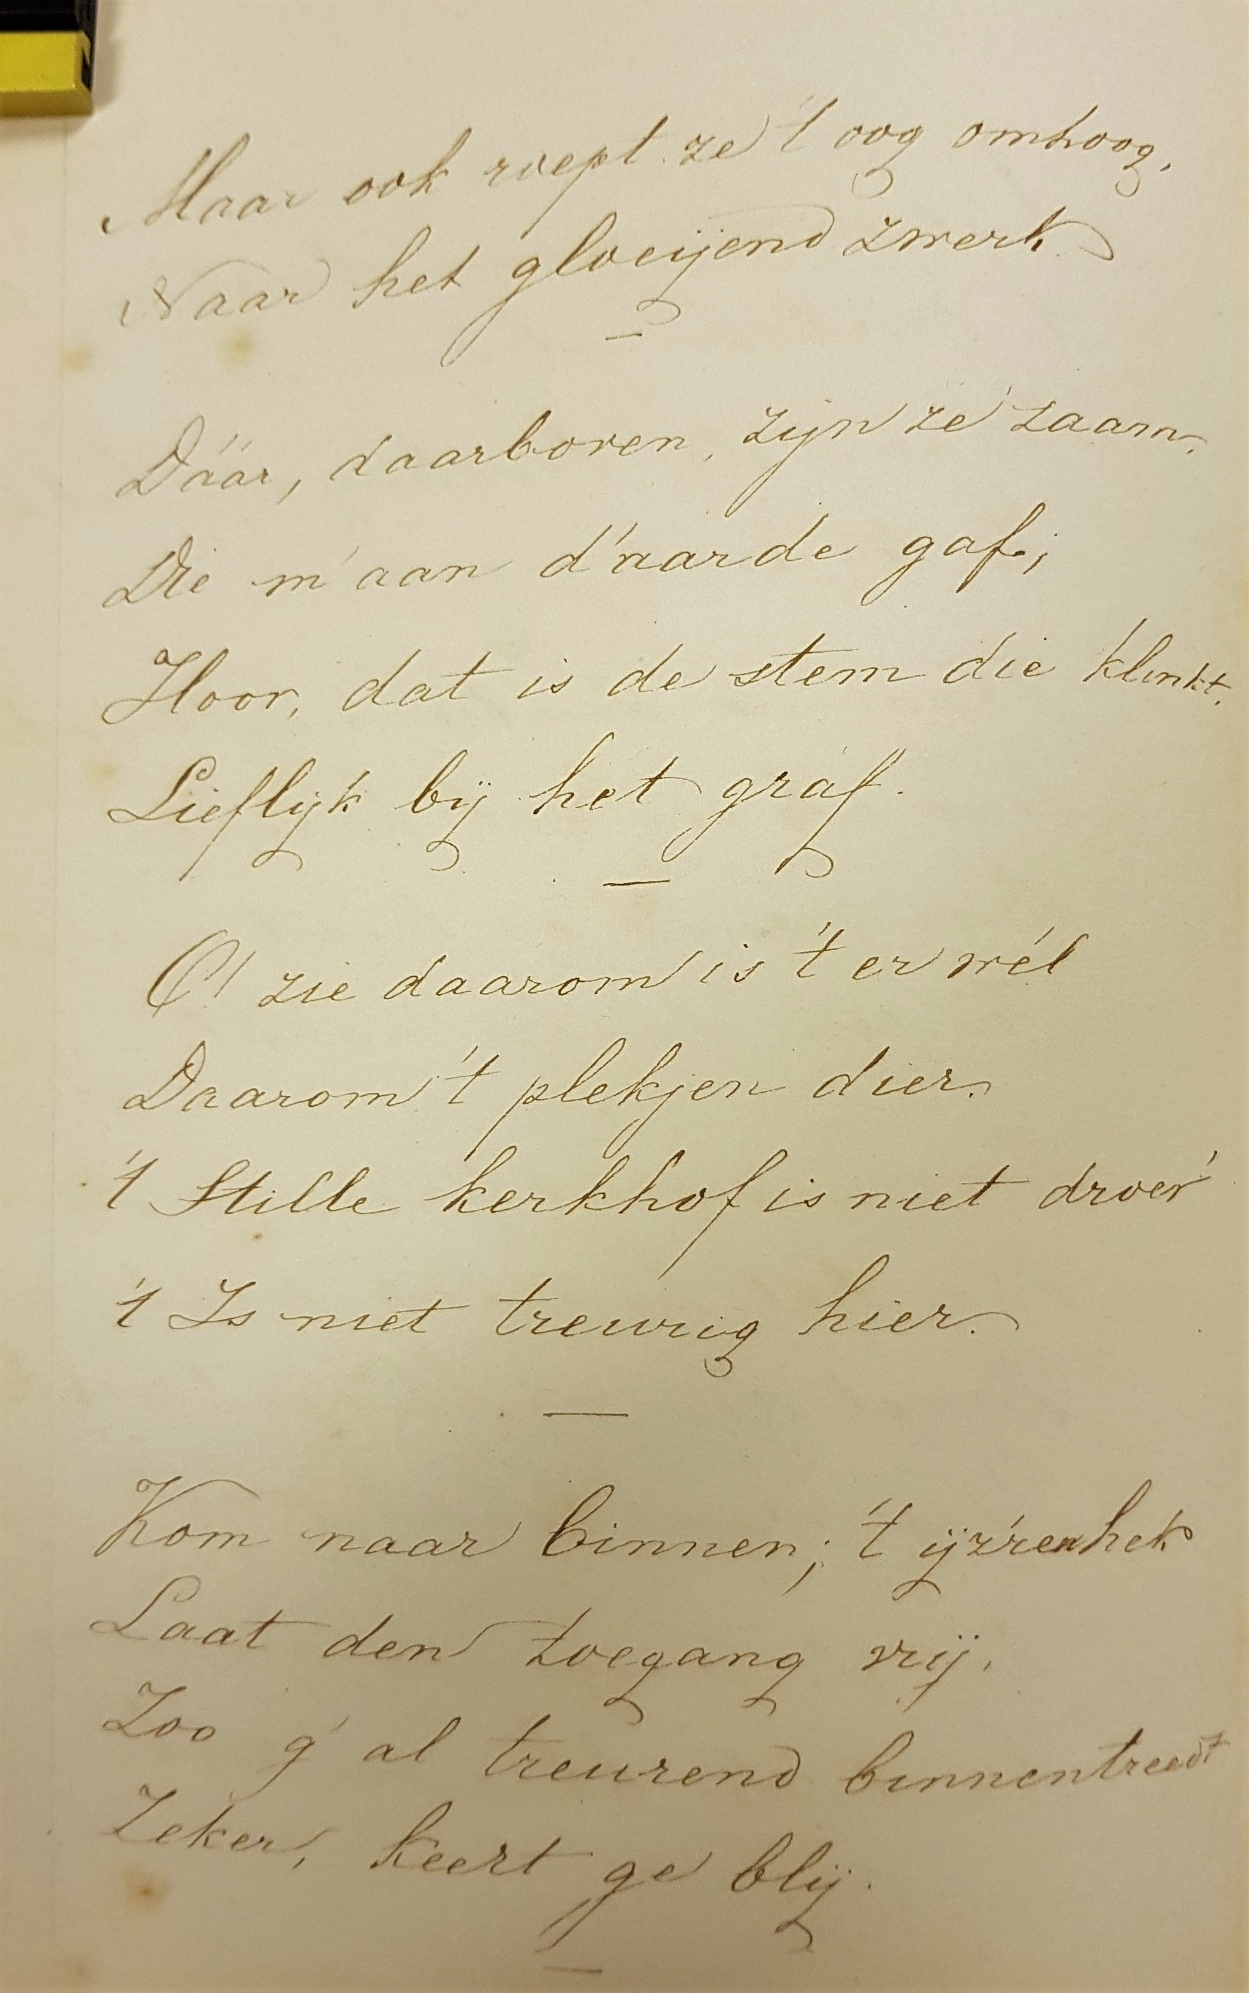 Maar ook roept ze 't oog omhoog,
Naar het gloeijend zwerk
—
Dáár, daarboven, zijn ze zaam,
Die m' aan d'aarde gaf;
Hoor, dat is de stem die klinkt,
Lieflijk bij het graf.
—
O! zie daarom is 't er wél
Daarom 't plekjen dier.
't Stille kerkhof is niet droev'
't Is niet treurig hier.
—
Kom naar binnen; 't ijz'ren hek
Laat den toegang vrij,
Zoo g' al treurend binnentreedt
Zeker, keert ge blij.
—